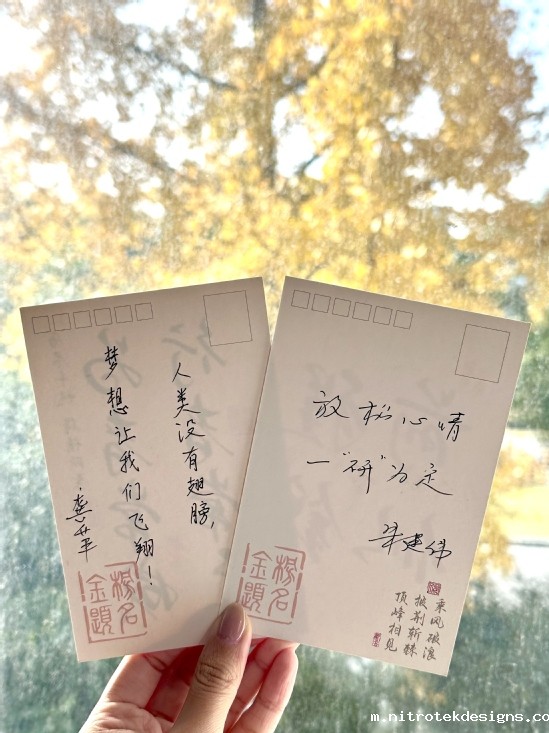 人类没有翅膀,
梦想让我们飞翔!
金榜
題名
放松心情
一"研"为定
金榜
題名
乘风破浪
披荆斩棘
顶峰相见
m.nitrotekdesigns.co